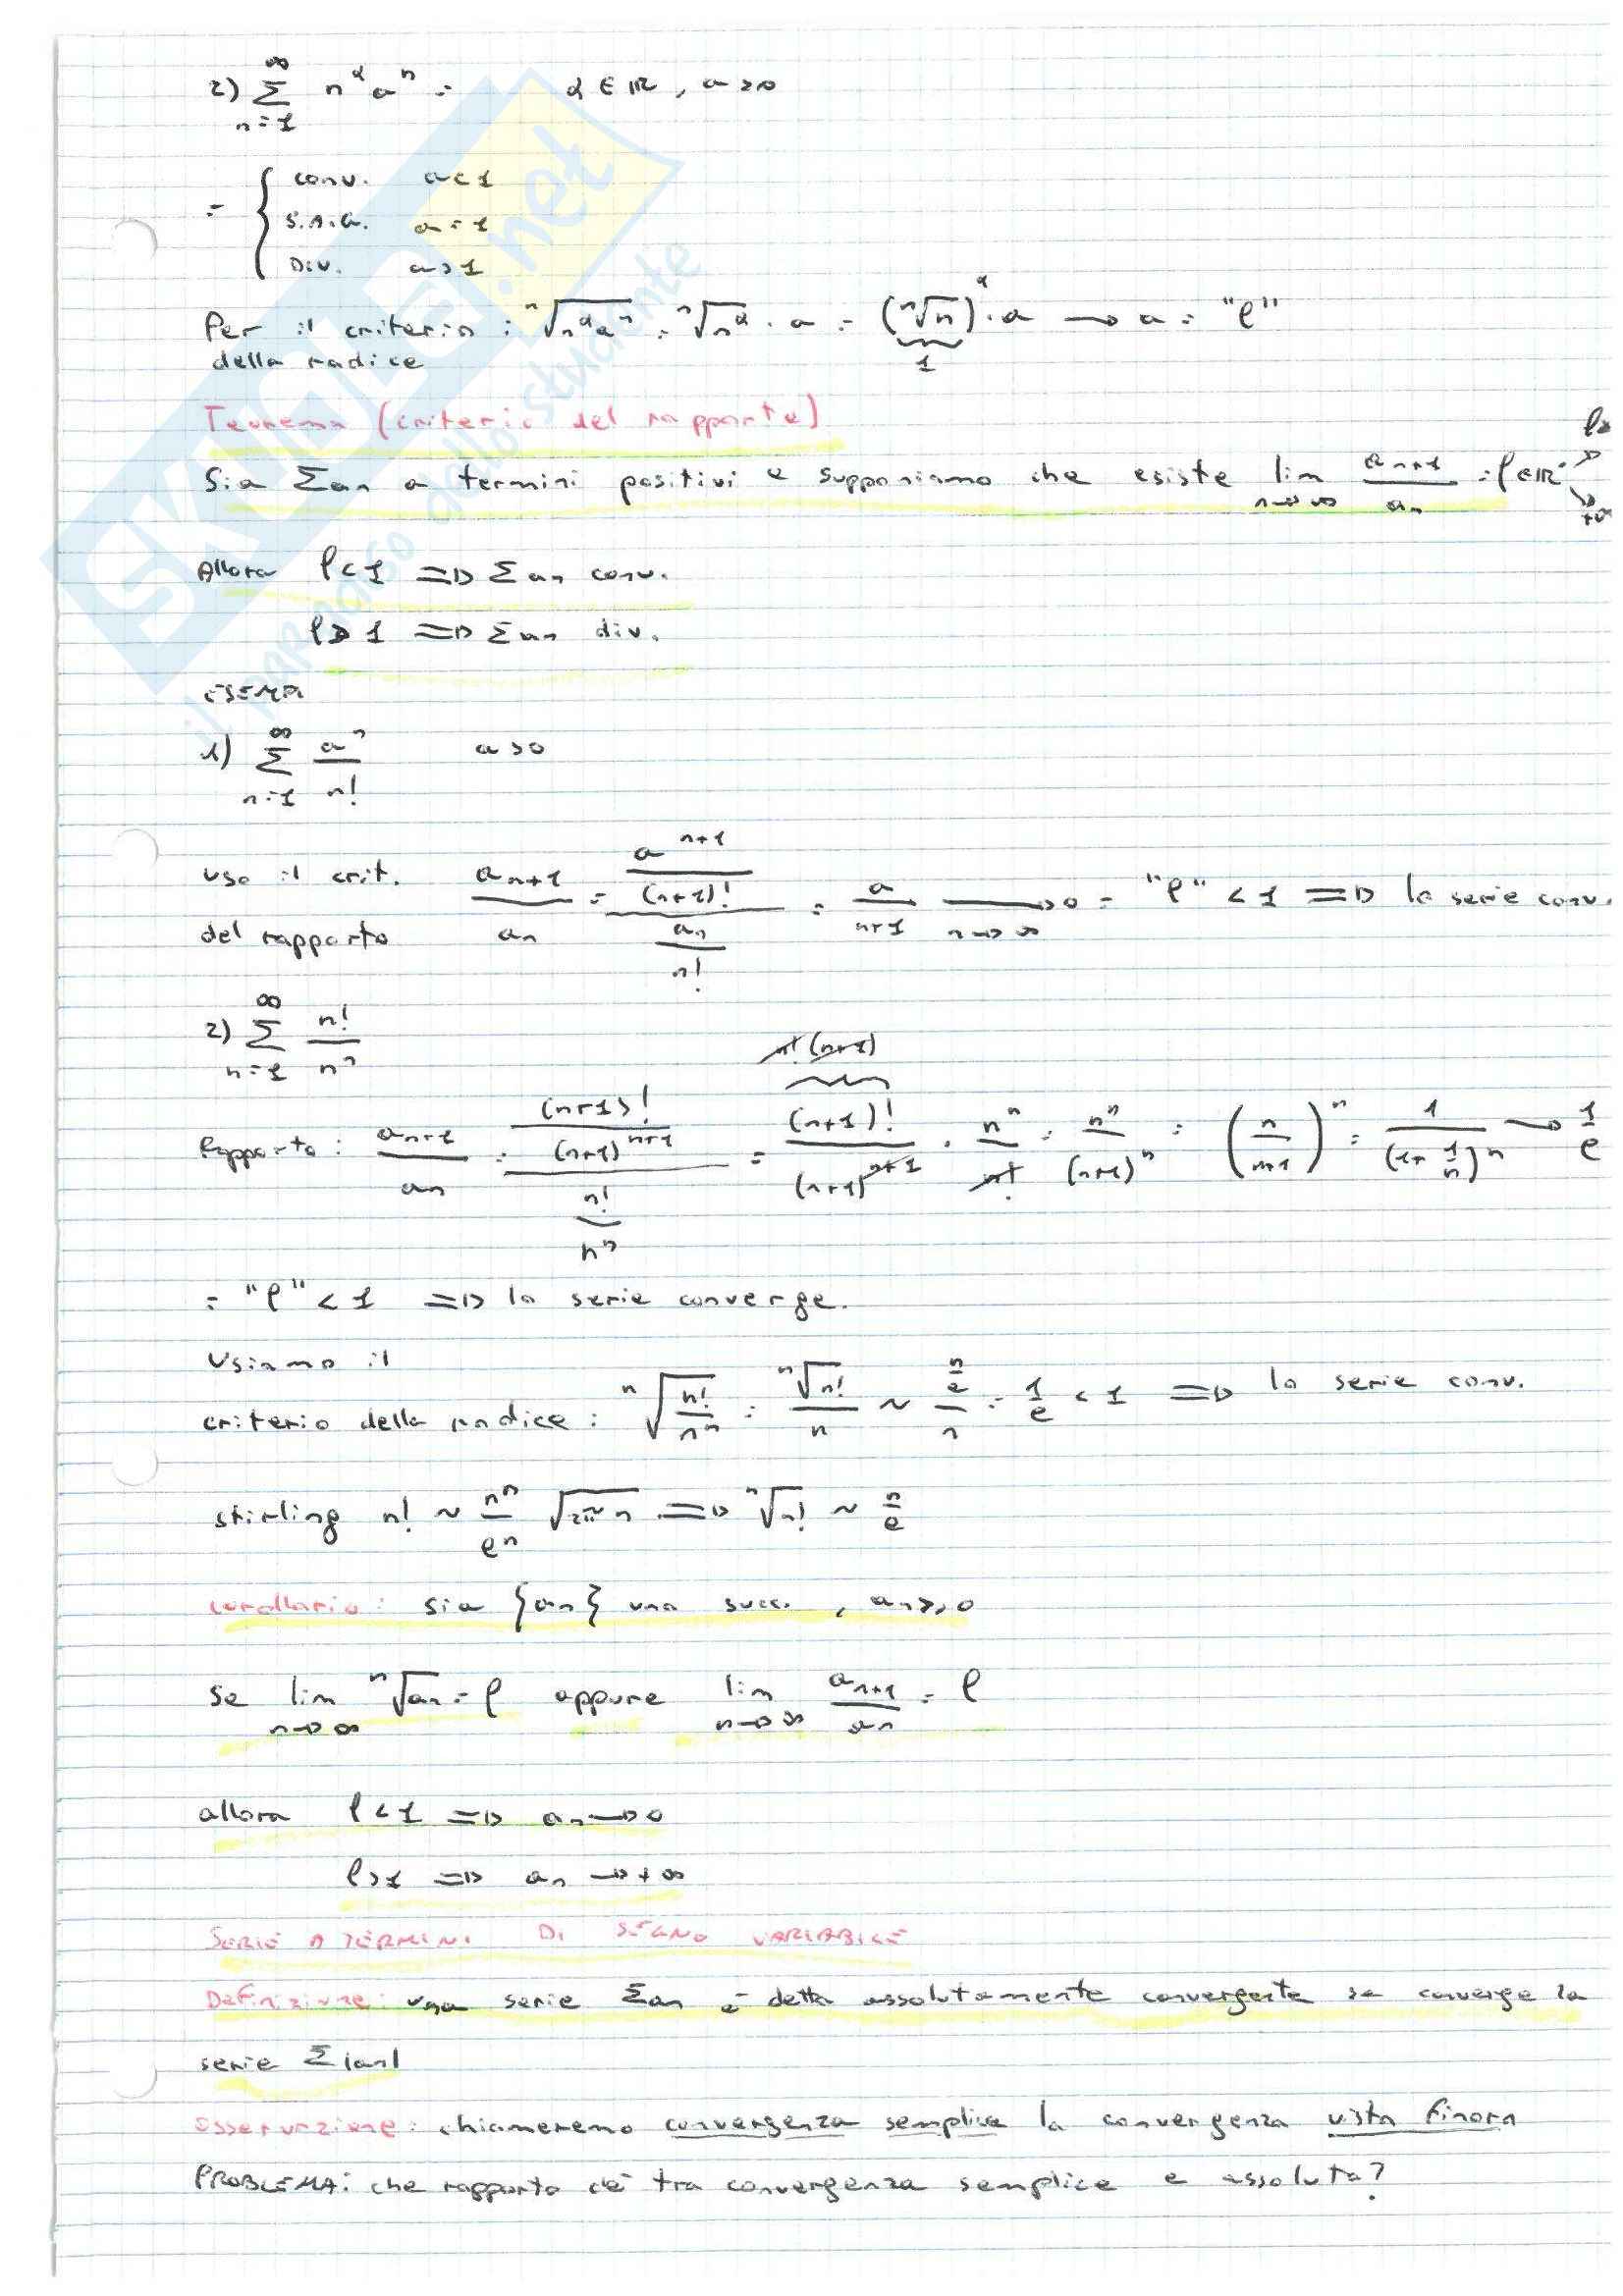 2) ∑_{n=1}^{∞} n^α a^n = α ∈ ℝ, a > 0
= { conv. a < 1
S.A.G. a = 1
Div. a > 1
Per il criterio : ⁿ√(n^α a^n) = ⁿ√(n^α) · a = (ⁿ√n)^α · a → a = "ℓ"
della radice 1
Teorema (criterio del rapporto)
Sia ∑an a termini positivi e supponiamo che esiste lim_{n→∞} a_{n+1}/a_n = ℓ ∈ ℝ
Allora ℓ < 1 ⇒ ∑an conv.
ℓ > 1 ⇒ ∑an div.
ESEMPI
1) ∑_{n=1}^{∞} a^n/n! a > 0
uso il crit.
del rapporto a_{n+1}/a_n = (a^{n+1}/(n+1)!)/(a^n/n!) = a/(n+1) →_{n→∞} 0 = "ℓ" < 1 ⇒ la serie conv.
2) ∑_{n=1}^{∞} n!/n^n
n! (n+1)
Rapporto : a_{n+1}/a_n = ((n+1)!/(n+1)^{n+1})/(n!/n^n) = (n+1)!/(n+1)^{n+1} · n^n/n! = n^n/(n+1)^n = (n/(n+1))^n = 1/(1+1/n)^n → 1/e
= "ℓ" < 1 ⇒ la serie converge.
Usiamo il
criterio della radice : ⁿ√(n!/n^n) = ⁿ√n!/n ~ (n/e)/n = 1/e < 1 ⇒ la serie conv.
stirling n! ~ n^n/e^n √(2πn) ⇒ ⁿ√n! ~ n/e
corollario : sia {an} una succ. , an ≥ 0
se lim_{n→∞} ⁿ√an = ℓ oppure lim_{n→∞} a_{n+1}/a_n = ℓ
allora ℓ < 1 ⇒ an → 0
ℓ > 1 ⇒ an → +∞
SERIE A TERMINI DI SEGNO VARIABILE
Definizione: una serie ∑an è detta assolutamente convergente se converge la
serie ∑|an|
osservazione : chiameremo convergenza semplice la convergenza vista finora
PROBLEMA: che rapporto c'è tra convergenza semplice e assoluta?
SKUOLA.net
il PARADISO dello studente